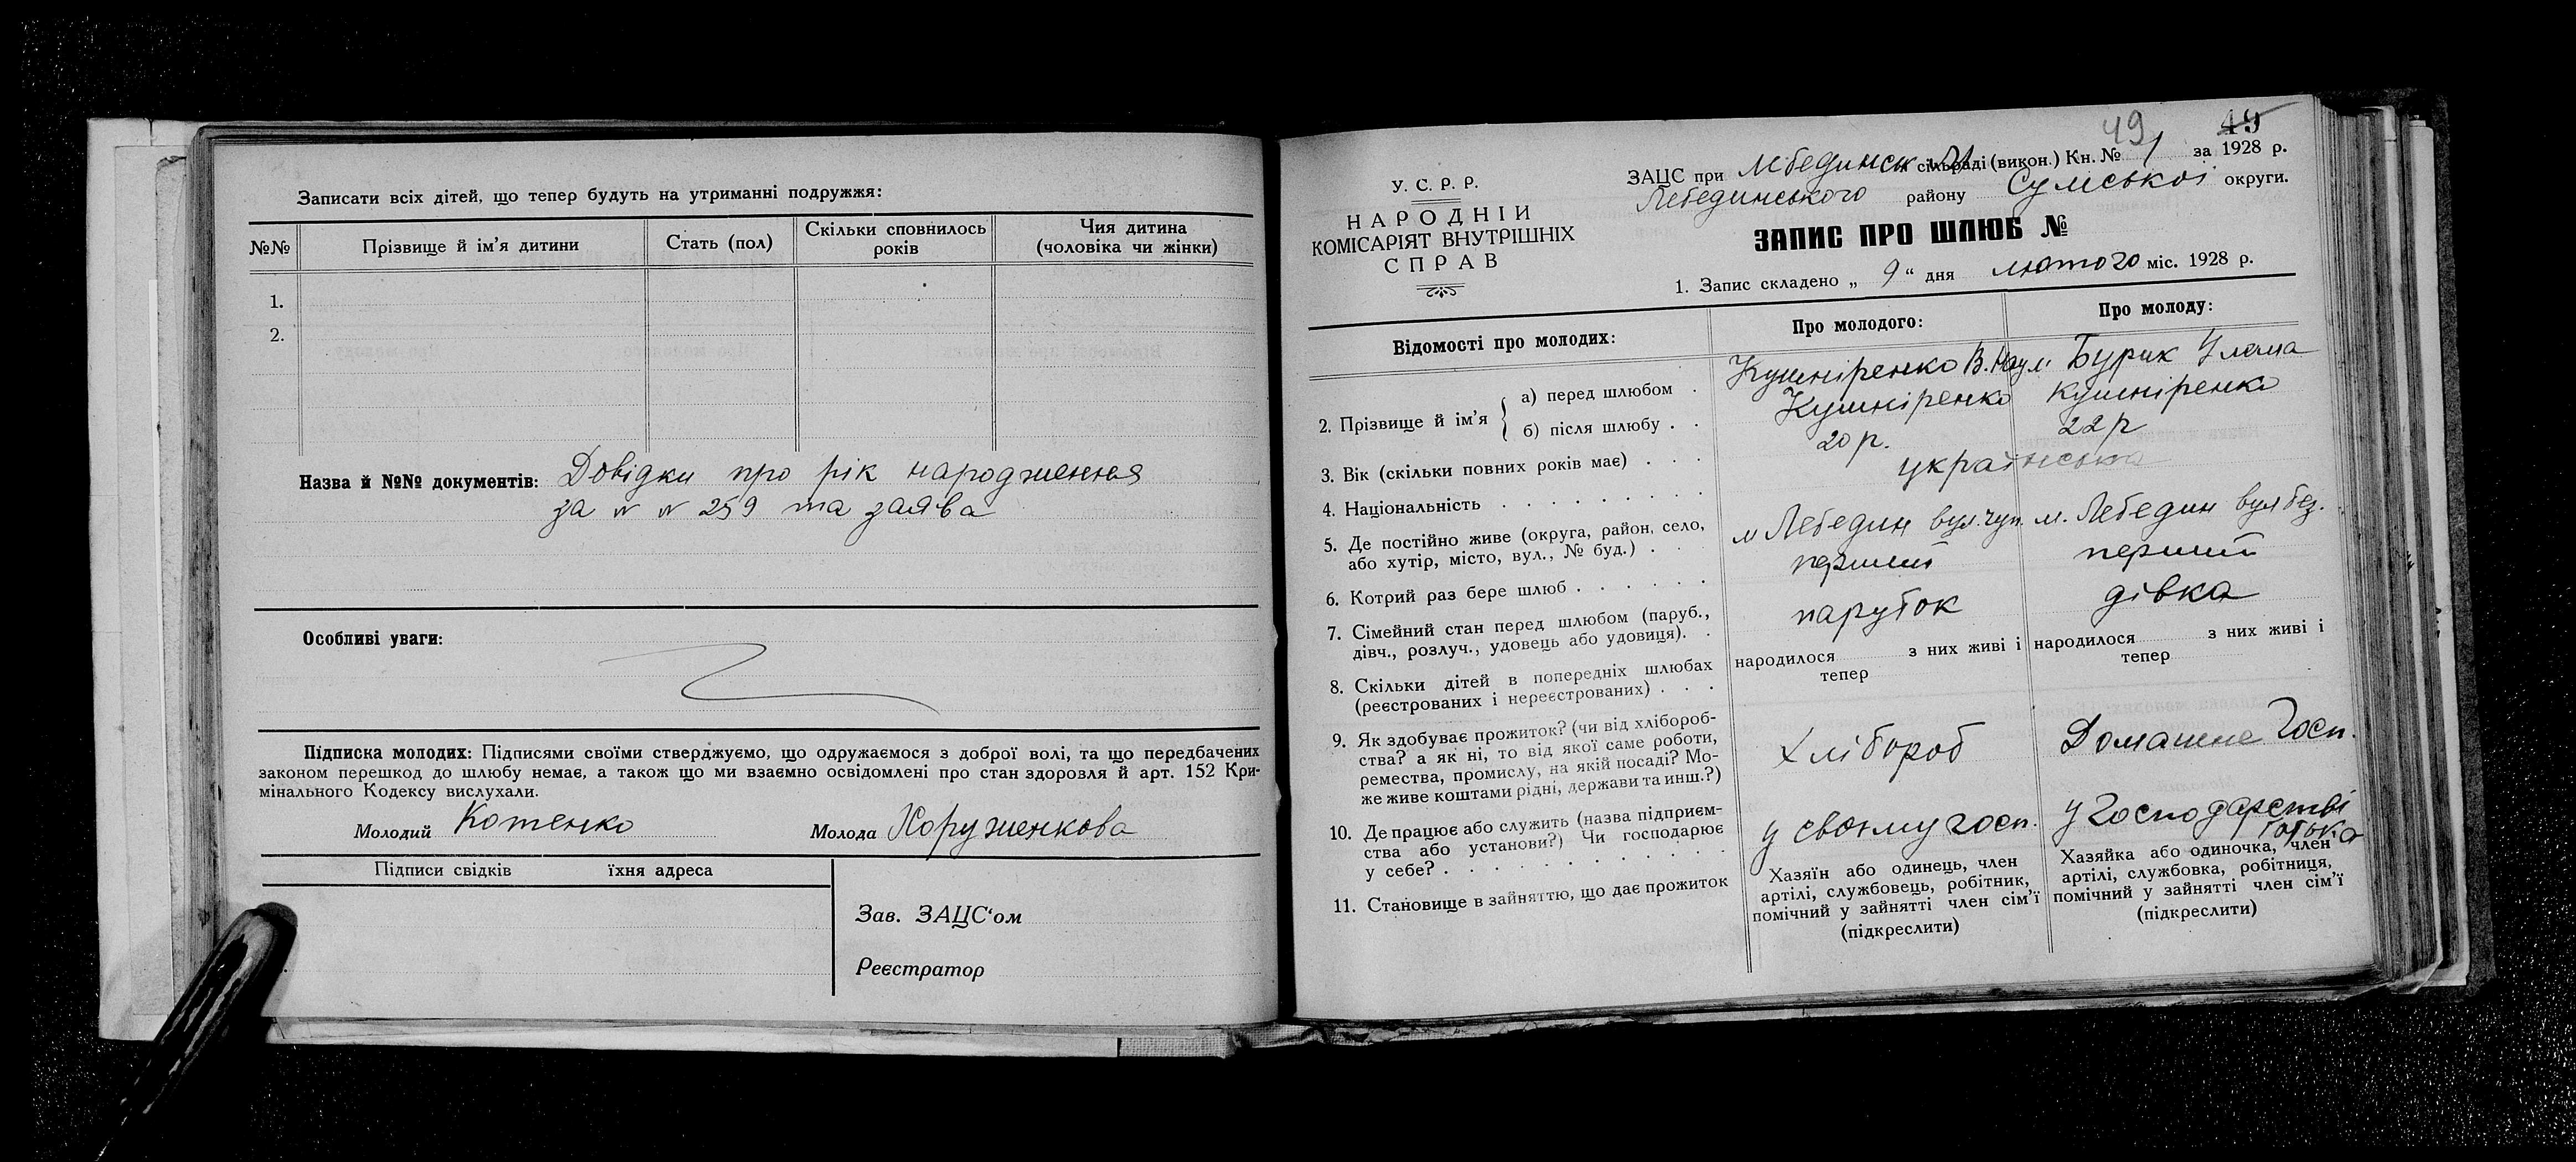 Записати всіх дітей, що тепер будуть на утриманні подружжя:
№№ Прізвище й ім'я дитини Стать (пол) Скільки сповнилось років Чия дитина (чоловіка чи жінки)
1.
2.
Назва й №№ документів: Довідки про рік народження
за № № 259 та заява
Особливі уваги:
Підписка молодих: Підписями своїми стверджуємо, що одружаємося з доброї волі, та що передбачених
законом перешкод до шлюбу немає, а також що ми взаємно освідомлені про стан здоровля й арт. 152 Кри-
мінального Кодексу вислухали.
Молодий Котенко Молода Хоруженкова
Підписи свідків їхня адреса
Зав. ЗАЦС'ом
Реєстратор
49 49
У. С. Р. Р.
НАРОДНІЙ
КОМІСАРІЯТ ВНУТРІШНІХ
СПРАВ
ЗАЦС при Лебединськ сільраді (викон.) Кн. № 1 за 1928 р.
Лебединського району Сумської округи.
ЗАПИС ПРО ШЛЮБ №
1. Запис складено „ 9 “ дня лютого міс. 1928 р.
Відомості про молодих: Про молодого: Про молоду:
2. Прізвище й ім'я
а) перед шлюбом . Кушніренко В. Бурик Уляна
б) після шлюбу . . Кушніренко Кушніренко
3. Вік (скільки повних років має) . . . 20 р. 22 р
4. Національність . . . . . . . . . українська
5. Де постійно живе (округа, район, село,
або хутір, місто, вул., № буд.) . . м Лебедин вул. м. Лебедин вул без.
6. Котрий раз бере шлюб . . . . . . перший перший
7. Сімейний стан перед шлюбом (паруб.,
дівч., розлуч., удовець або удовиця). . парубок дівка
8. Скільки дітей в попередніх шлюбах
(реєстрованих і нереєстрованих) . . .
народилося з них живі і
тепер
народилося з них живі і
тепер
9. Як здобуває прожиток? (чи від хлібороб-
ства? а як ні, то від якої саме роботи,
ремества, промислу, на якій посаді? Мо-
же живе коштами рідні, держави та инш.?)
Хлібороб
Домашнє Госп.
10. Де працює або служить (назва підприєм-
ства або установи?) Чи господарює
у себе? . . . . . . . . . . .
у своєму госп.
у Господарстві
батька
11. Становище в зайняттю, що дає прожиток
Хазяїн або одинець, член
артілі, службовець, робітник,
помічний у зайнятті член сім'ї
(підкреслити)
Хазяйка або одиночка, член
артілі, службовка, робітниця,
помічний у зайнятті член сім'ї
(підкреслити)